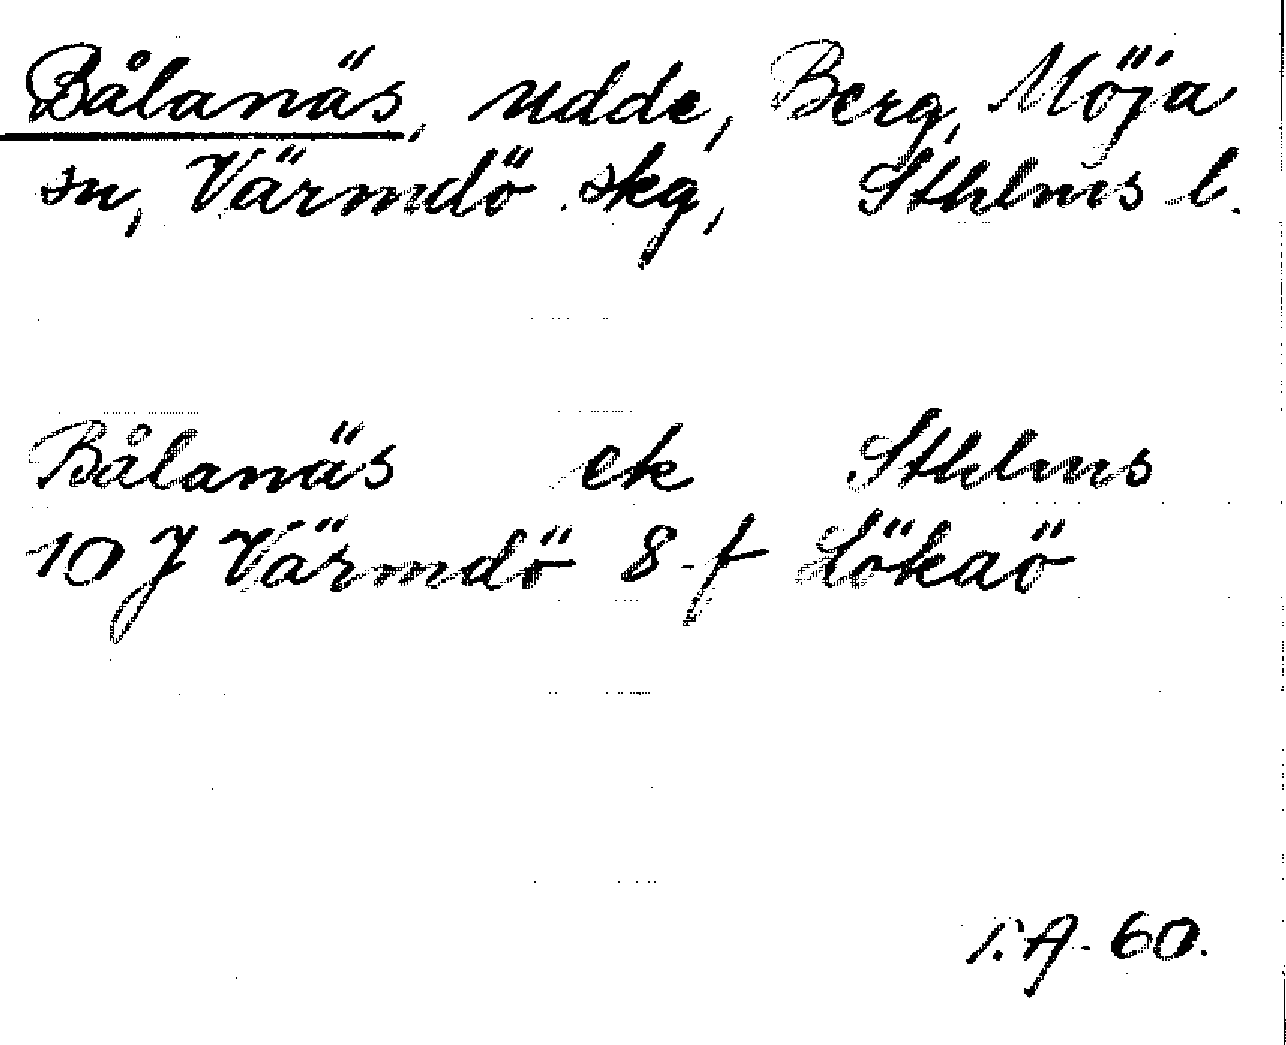 Bålanäs, udde, Berg, Möja
sn, Värmdö skg, Sthlms l.
Bålanäs ek Sthlms
10 J Värmdö 8 f Lökaö
A. 60.